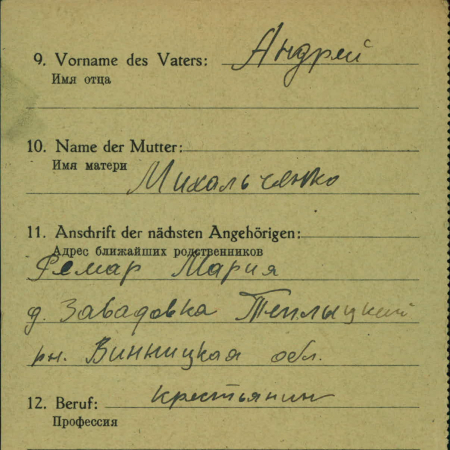 9. Vorname des Vaters: Андрей
Имя отца
10. Name der Mutter:
Имя матери
Михальченко
11. Anschrift der nächsten Angehörigen:
Адрес ближайших родственников
Фемар Мария
д. Завадовка Теплыцкий
рн. Винницкая обл.
12. Beruf: крестьянин
Профессия